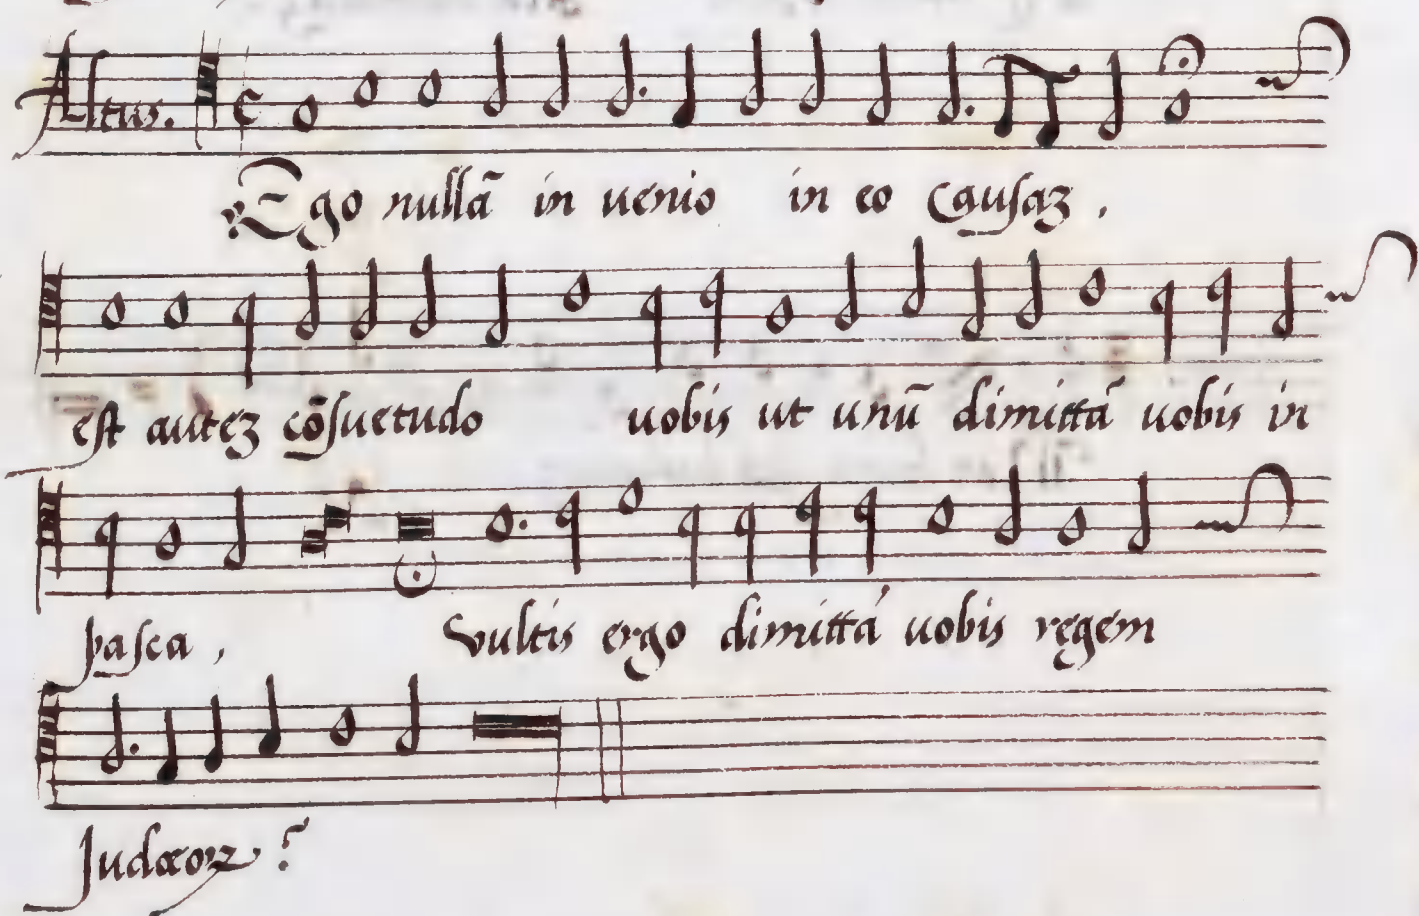 Altus.
Ego nullā in uenio in eo Causaꝫ .
est auteꝫ cōsuetudo uobis ut unū dimittā uobis in
pasca , Vultis ergo dimittā uobis regem
Judæoꝝ ?